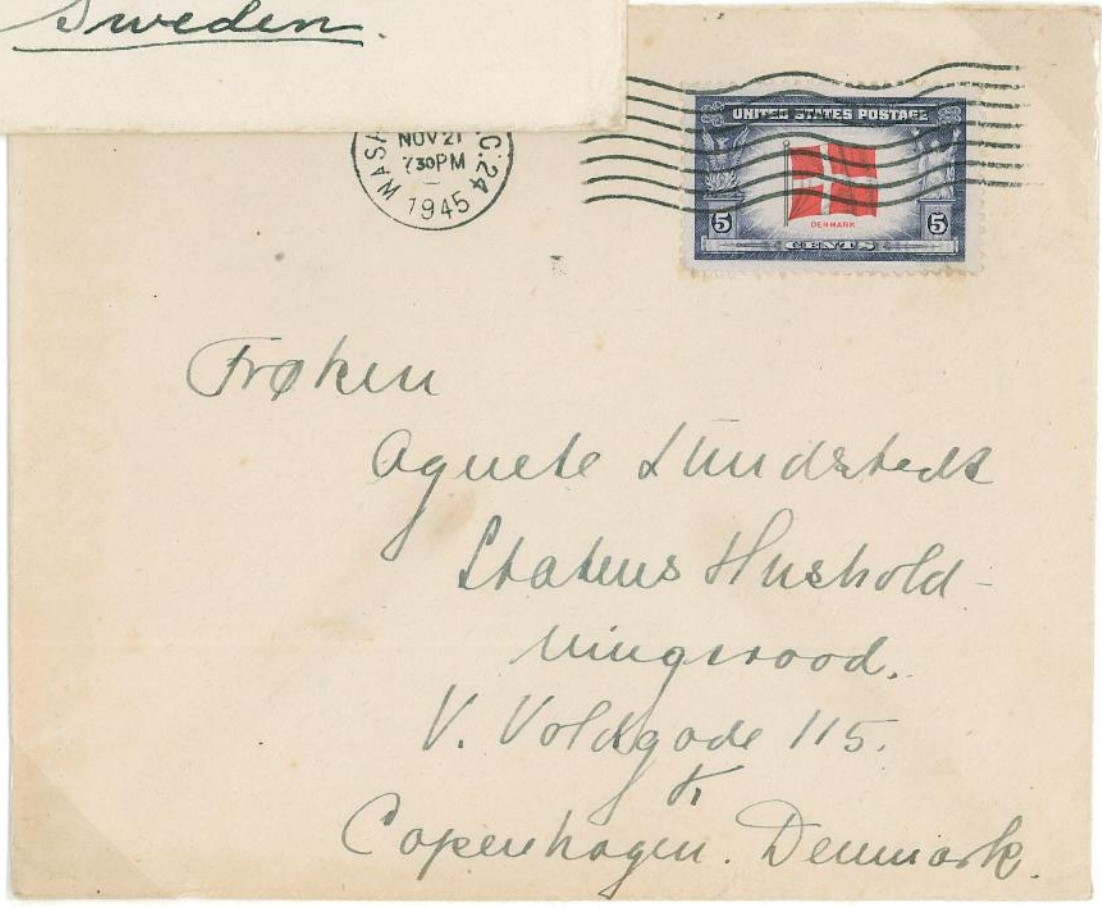 Sweden.
NOV 21
7 30 PM
1945
WASH
.C. 24
UNITED STATES POSTAGE
DENMARK
5
5
CENTS
Frøken
Agnete Lundstedt
Statens Hushold-
ningsraad.
V. Voldgade 115.
K
Copenhagen. Denmark.